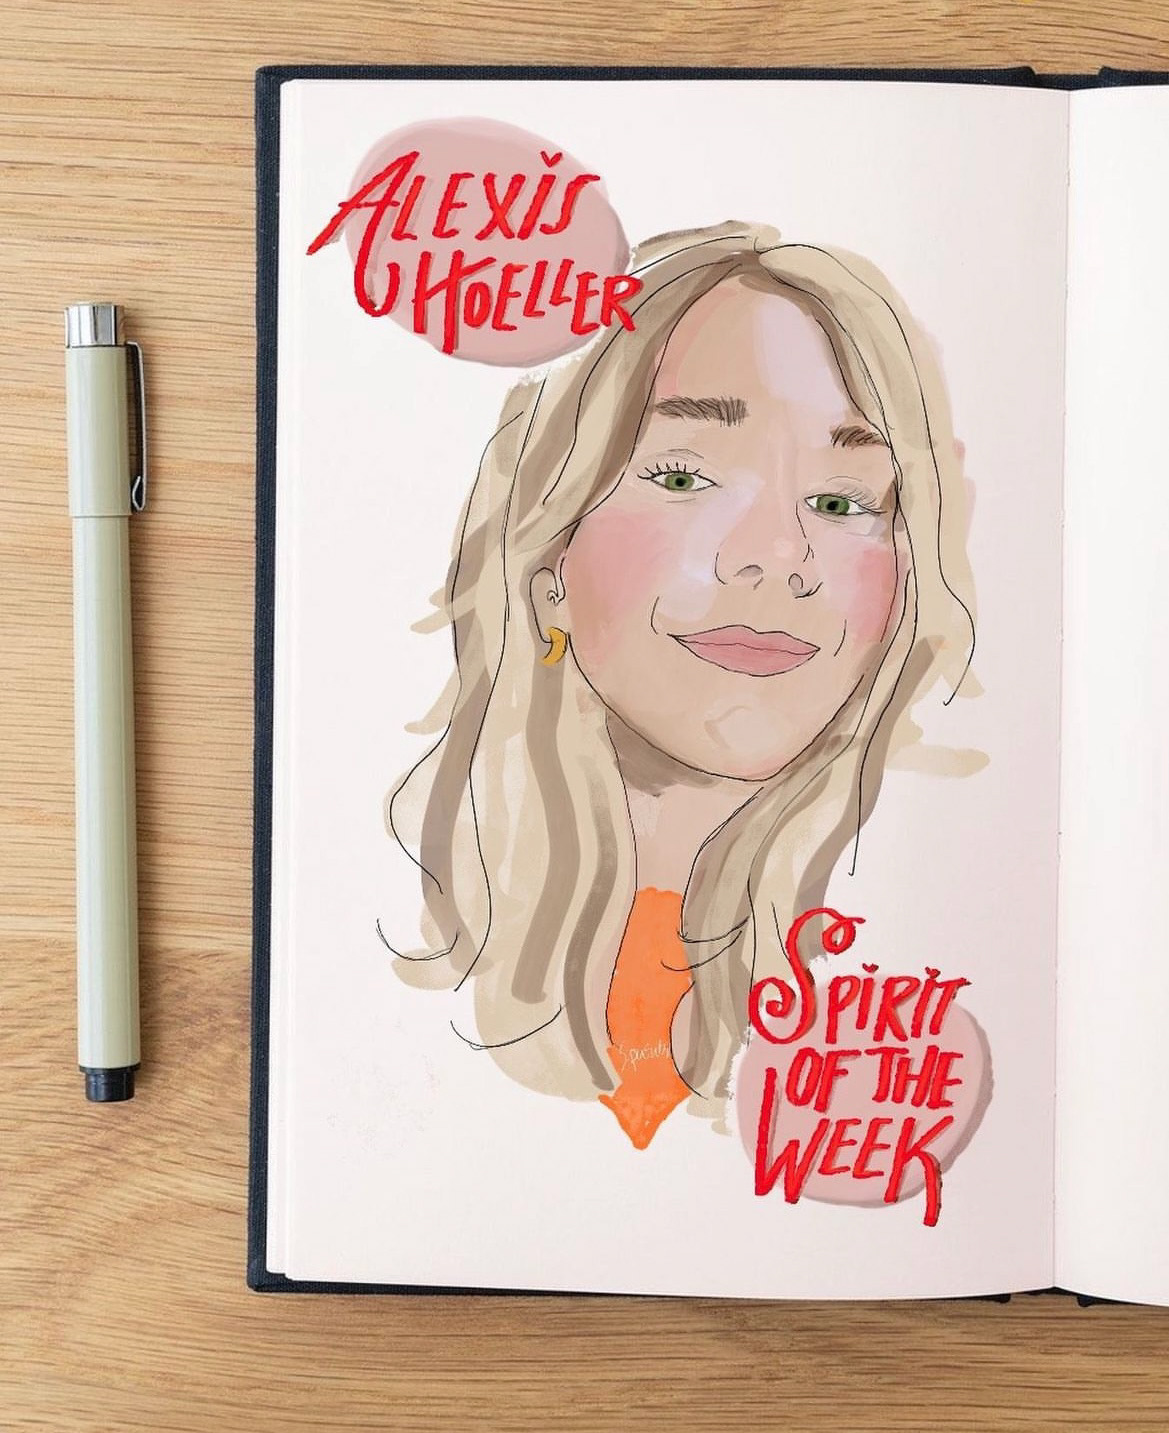 ALEXIS
HOELLER
SPIRIT
OF THE
WEEK